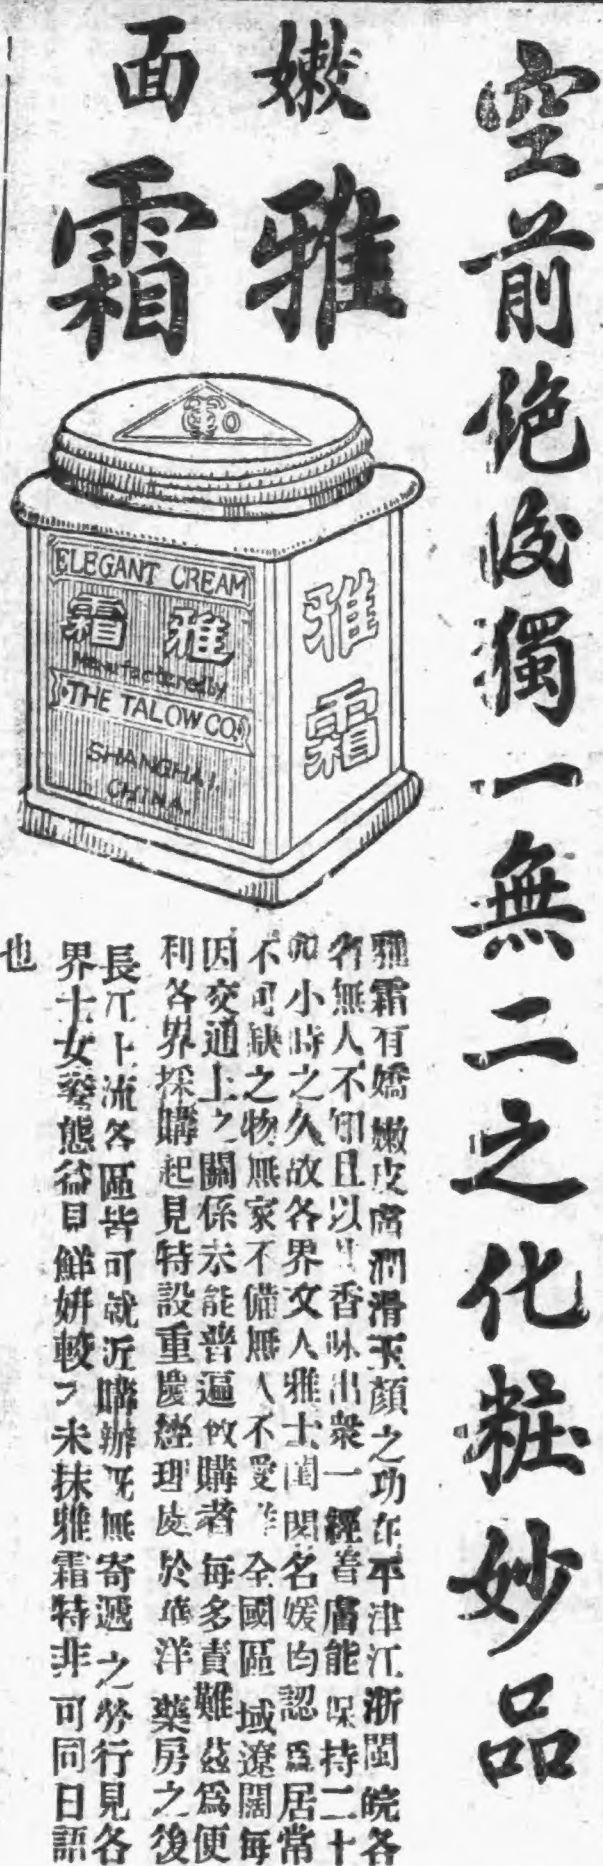 空前絕後獨一無二之化粧妙品
嫩面
雅霜
ELEGANT CREAM
雅霜
Manufactured by
THE TALOW CO.
SHANGHAI.
CHINA.
雅霜
雅霜有嬌嫩皮膚潤滑玉顏之功在平津江浙閩皖各
省無人不知且以其香味出衆一經着膚能保持二十
四小時之久故各界文人雅士閨閣名媛均認爲居常
不可缺之物無家不備無人不愛惟全國區域遼闊每
因交通上之關係未能普遍故購者每多責難茲爲便
利各界採購起見特設重慶經理處於華洋藥房之後
長江上流各區皆可就近購辦旣無寄遞之勞行見各
界士女姿態益見鮮姸較之未抹雅霜特非可同日語
也